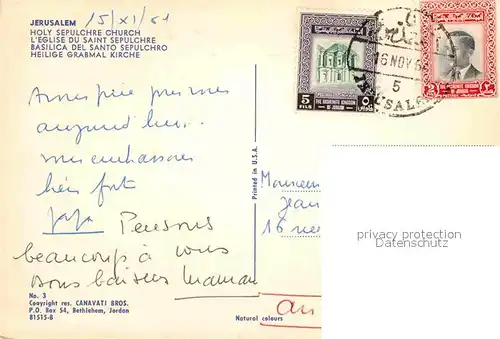 JERUSALEM 15/XI/61
HOLY SEPULCHRE CHURCH
L'EGLISE DU SAINT SEPULCHRE
BASILICA DEL SANTO SEPULCHRO
HEILIGE GRABMAL KIRCHE
16 NOV
5
JERUSALEM
5
FILS
THE HASHEMITE KINGDOM
OF JORDAN
THE HASHEMITE KINGDOM
OF JORDAN
aujourd'hui
embrassons
bien fort
Pensons
beaucoup à vous
bons baisers Maman
Printed in U.S.A.
Monsieur
Jean
16 rue
privacy protection
Dansk-samler
No. 3
Copyright res. CANAVATI BROS.
P.O. Box 54, Bethlehem, Jordan
81515-B
Natural colours